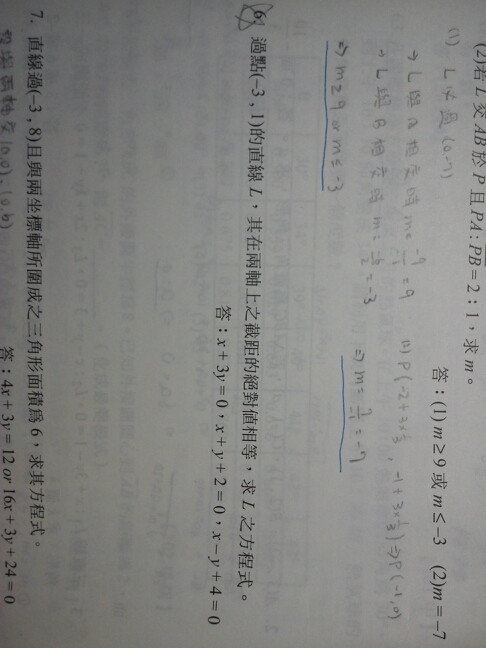 (2)若L交AB於P且PA:PB=2:1,求m。
答:(1)m≥9或m≤-3 (2)m=-7
(1) L必過(0,-7)
→ L與A相交時 m=-9/-1=9
→ L與B相交時 m=-6/2=-3
⇒ m≥9 or m≤-3
(2) P(-2+3×2/3, -1+3×1/3)⇒P(-1,0)
⇒ m=7/-1=-7
6. 過點(-3,1)的直線L,其在兩軸上之截距的絕對值相等,求L之方程式。
答:x+3y=0,x+y+2=0,x-y+4=0
7. 直線過(-3,8)且與兩坐標軸所圍成之三角形面積為6,求其方程式。
答:4x+3y=12 or 16x+3y+24=0
(0,0),(0,b)